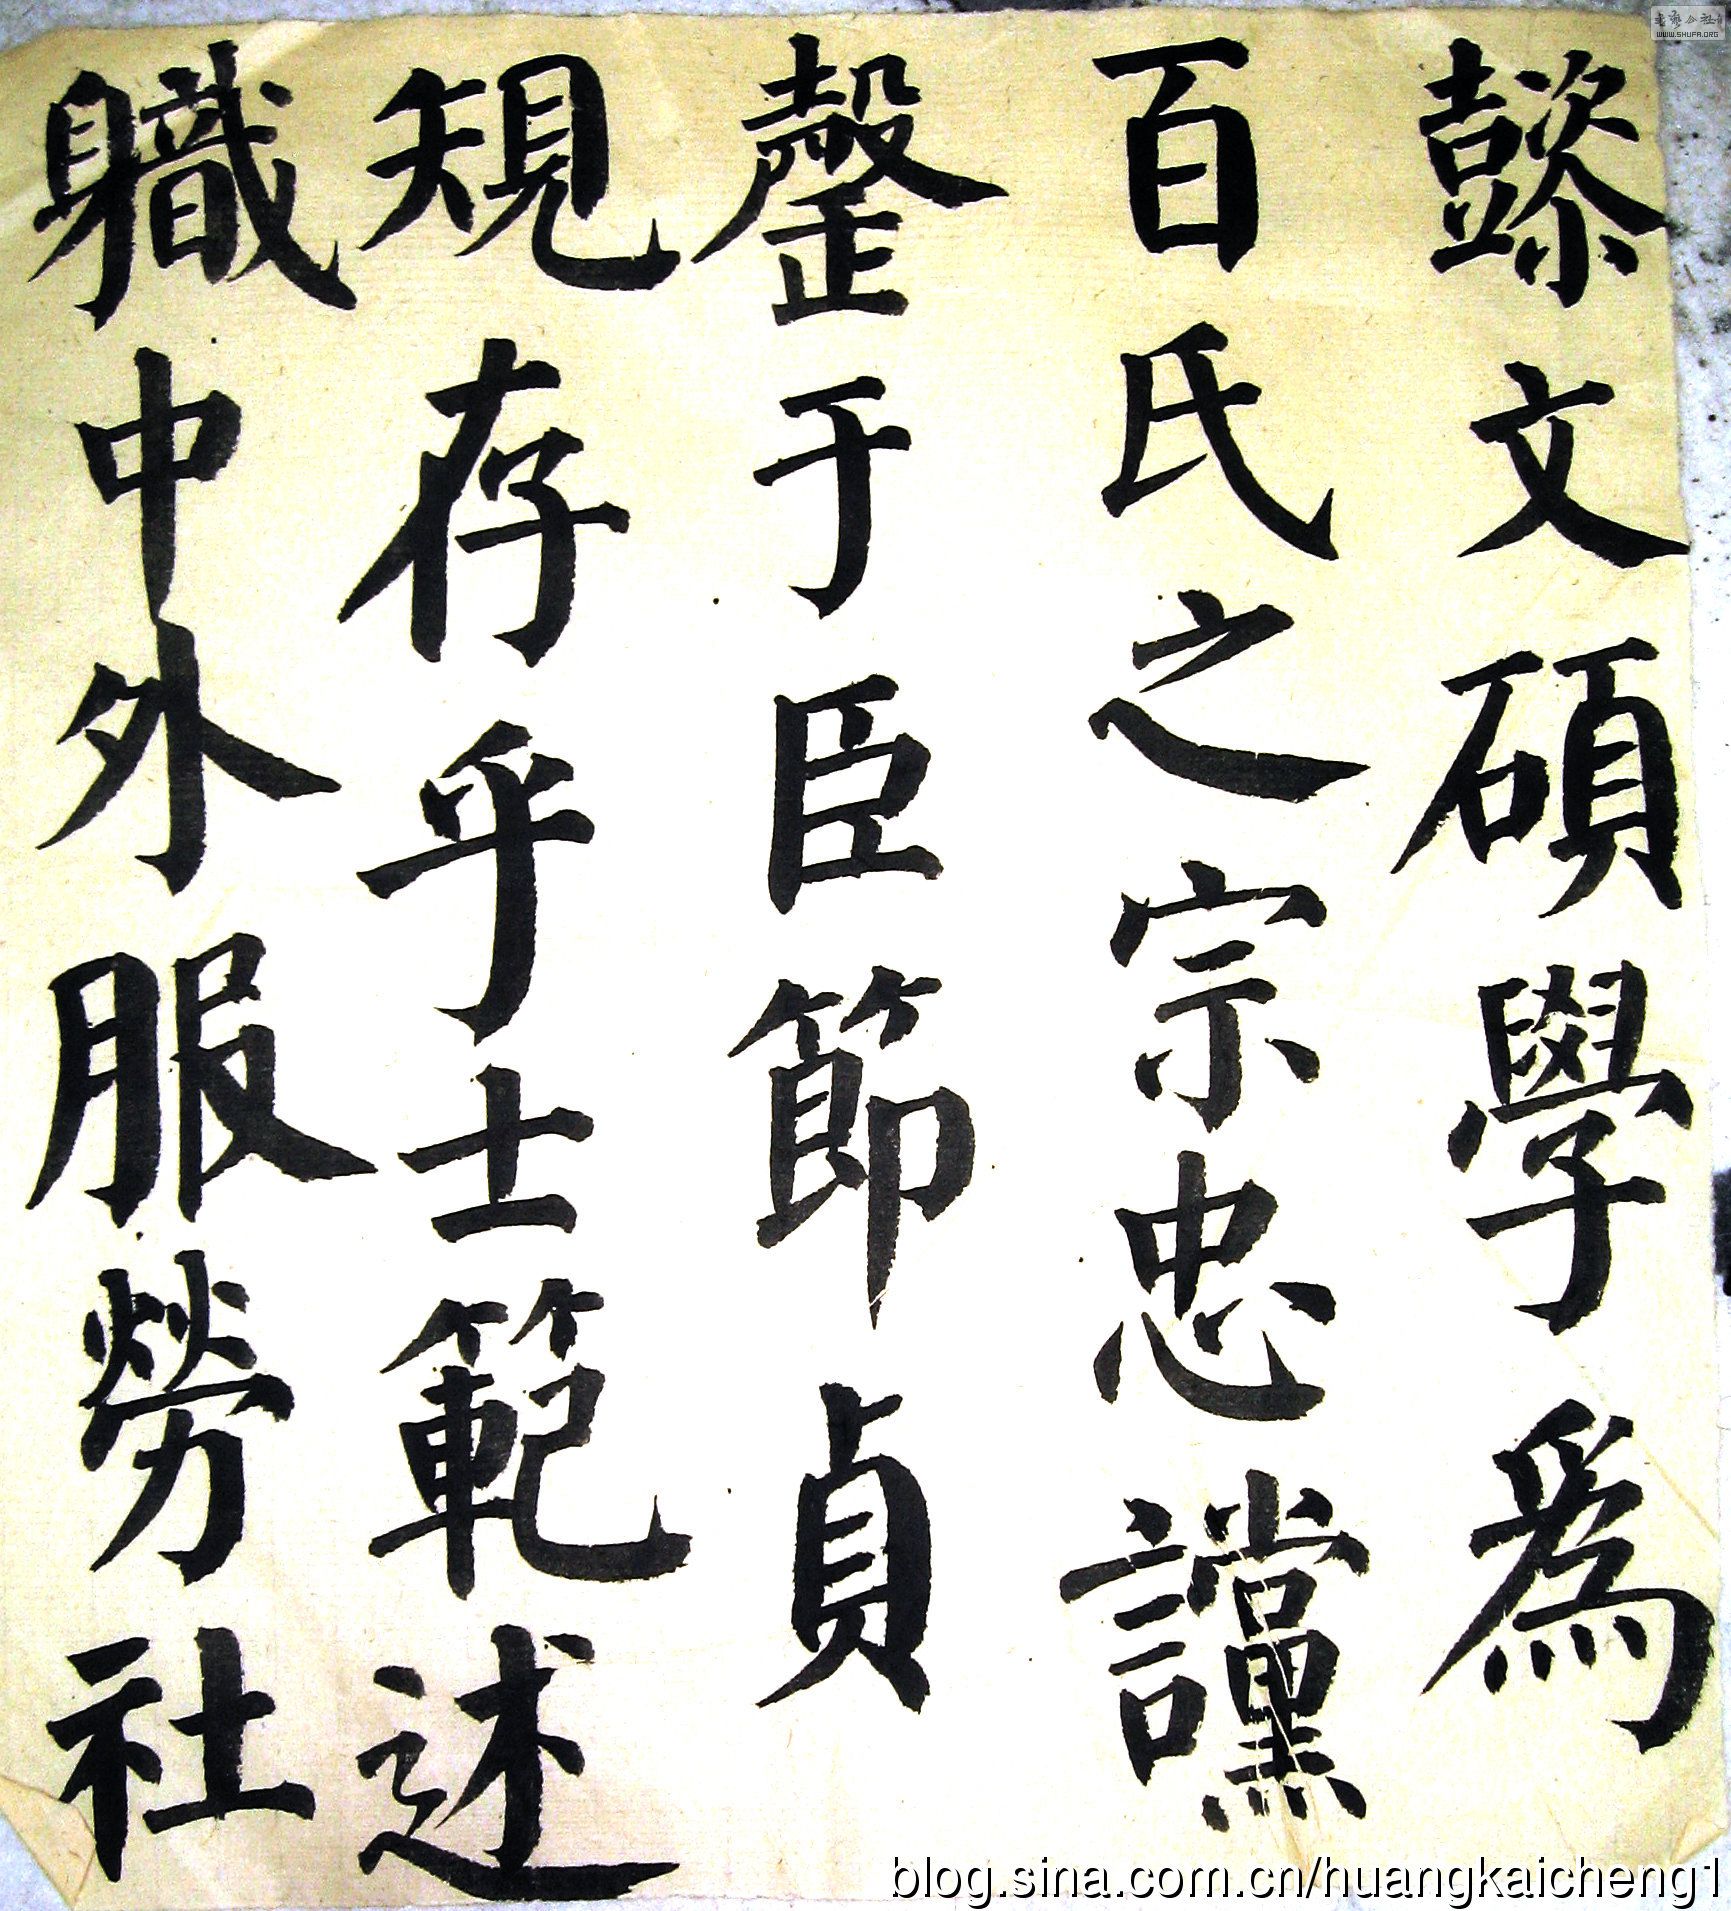 懿文碩學爲
百氏之宗忠讜
罄于臣節貞
䂓存乎士範述
軄中外服勞社
WWW.SHUFA.ORG
blog.sina.com.cn/huangkaicheng1